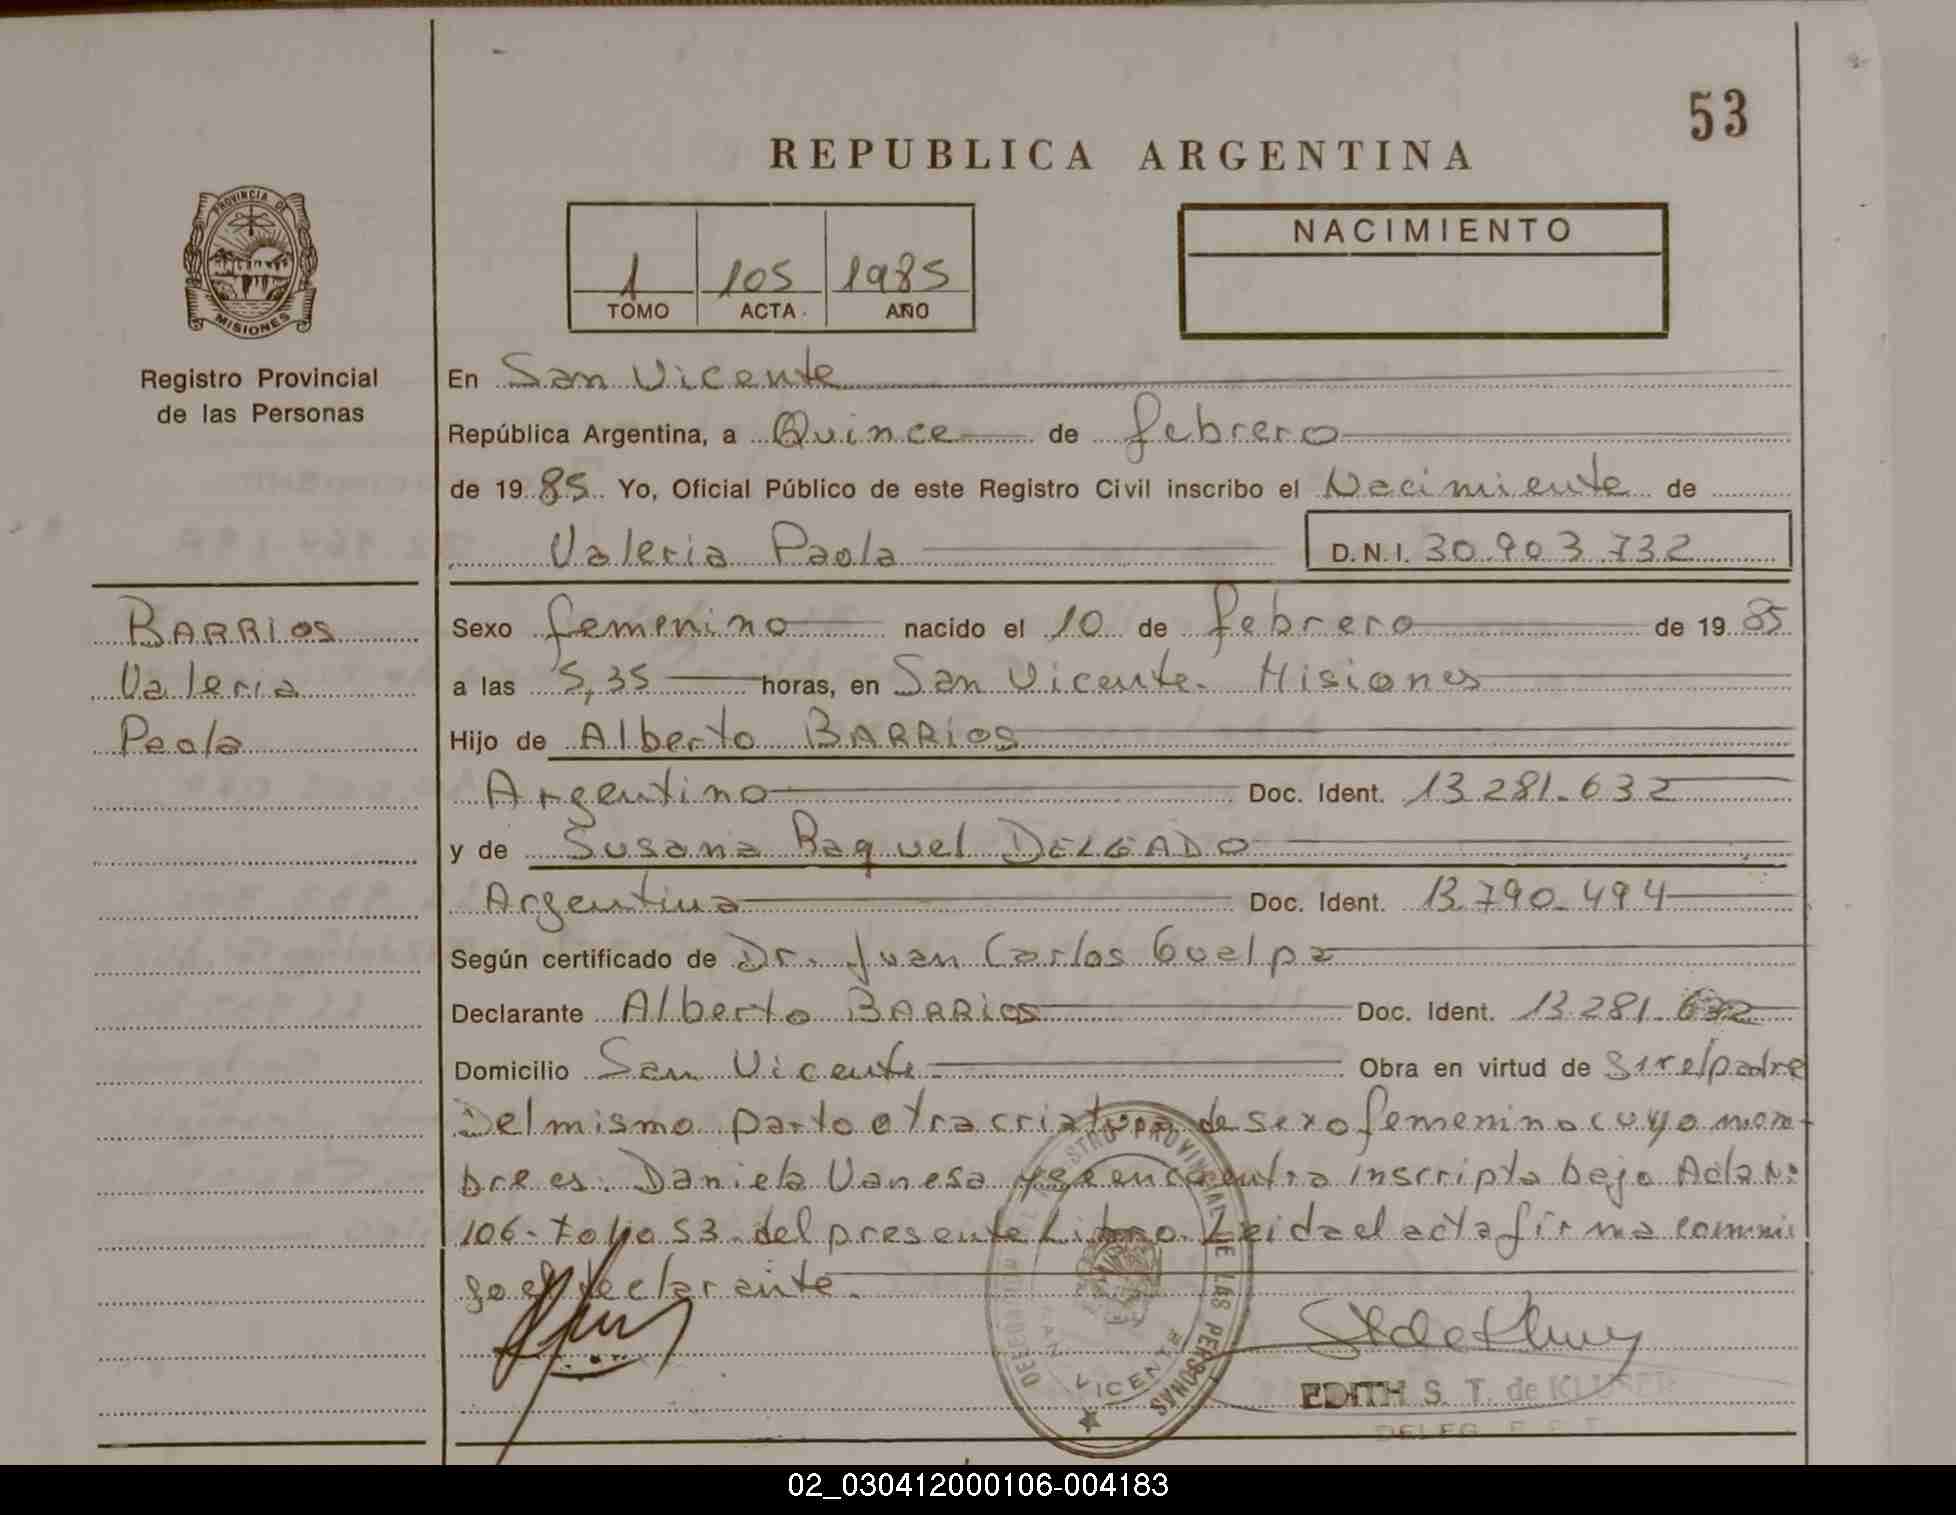 53
REPUBLICA ARGENTINA
PROVINCIA DE
MISIONES
Registro Provincial
de las Personas
1 105 1985
TOMO ACTA AÑO
NACIMIENTO
En San Vicente
República Argentina, a Quince de febrero
de 1985 Yo, Oficial Público de este Registro Civil inscribo el Nacimiento de
Valeria Paola D.N.I. 30.903.732
BARRIOS
Valeria
Paola
Sexo femenino nacido el 10 de febrero de 1985
a las 5,35 horas, en San Vicente. Misiones
Hijo de Alberto BARRIOS
Argentino Doc. Ident. 13.281.632
y de Susana Raquel DELGADO
Argentina Doc. Ident. 13.790.494
Según certificado de Dr. Juan Carlos Guelpa
Declarante Alberto BARRIOS Doc. Ident. 13.281.632
Domicilio San Vicente. Obra en virtud de Ser el padre
Del mismo parto otra criatura de sexo femenino cuyo nom-
bre es: Daniela Vanesa y se encuentra inscripta bajo Acta N:
106- Folio 53. del presente Libro. Leida el acta firma conmi
go el declarante.
REGISTRO PROVINCIAL DE LAS PERSONAS
SAN VICENTE
EDITH S. T. de
DELEG
02_030412000106-004183